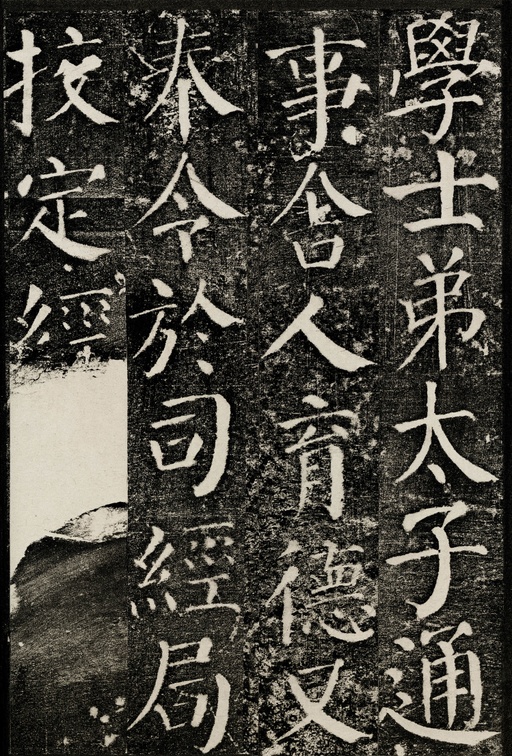 學士弟太子通
事舍人育德又
奉令於司經局
挍定經